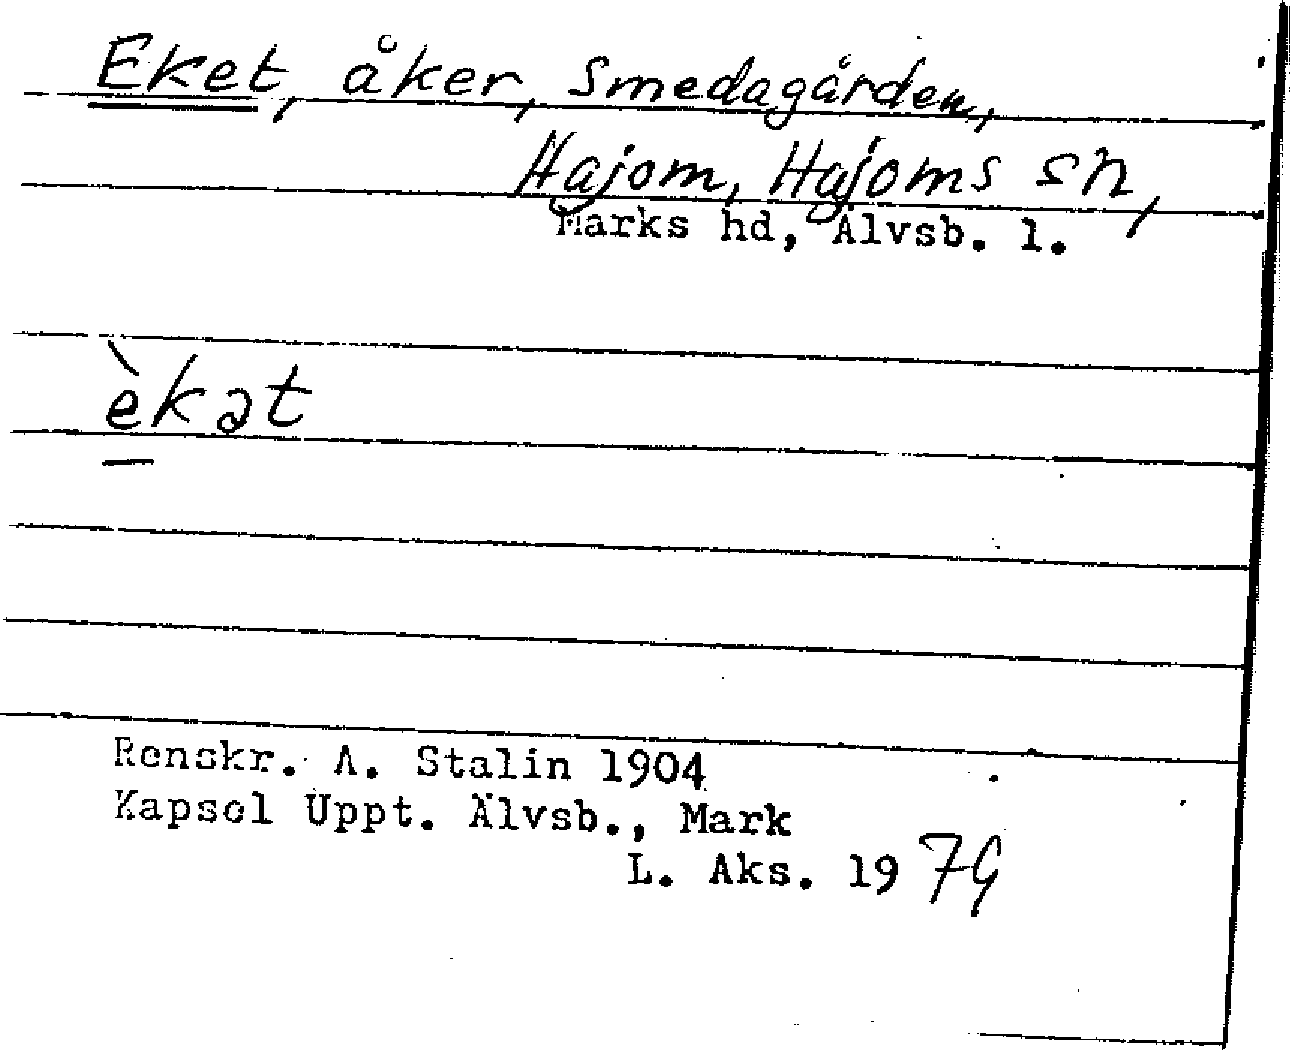 Eket, åker, Smedagården,
Hajom, Hajoms sn,
Marks hd, Älvsb. l.
èkət
Renskr. A. Stalin 1904
Kapsel Uppt. Älvsb., Mark
L. Aks. 1979